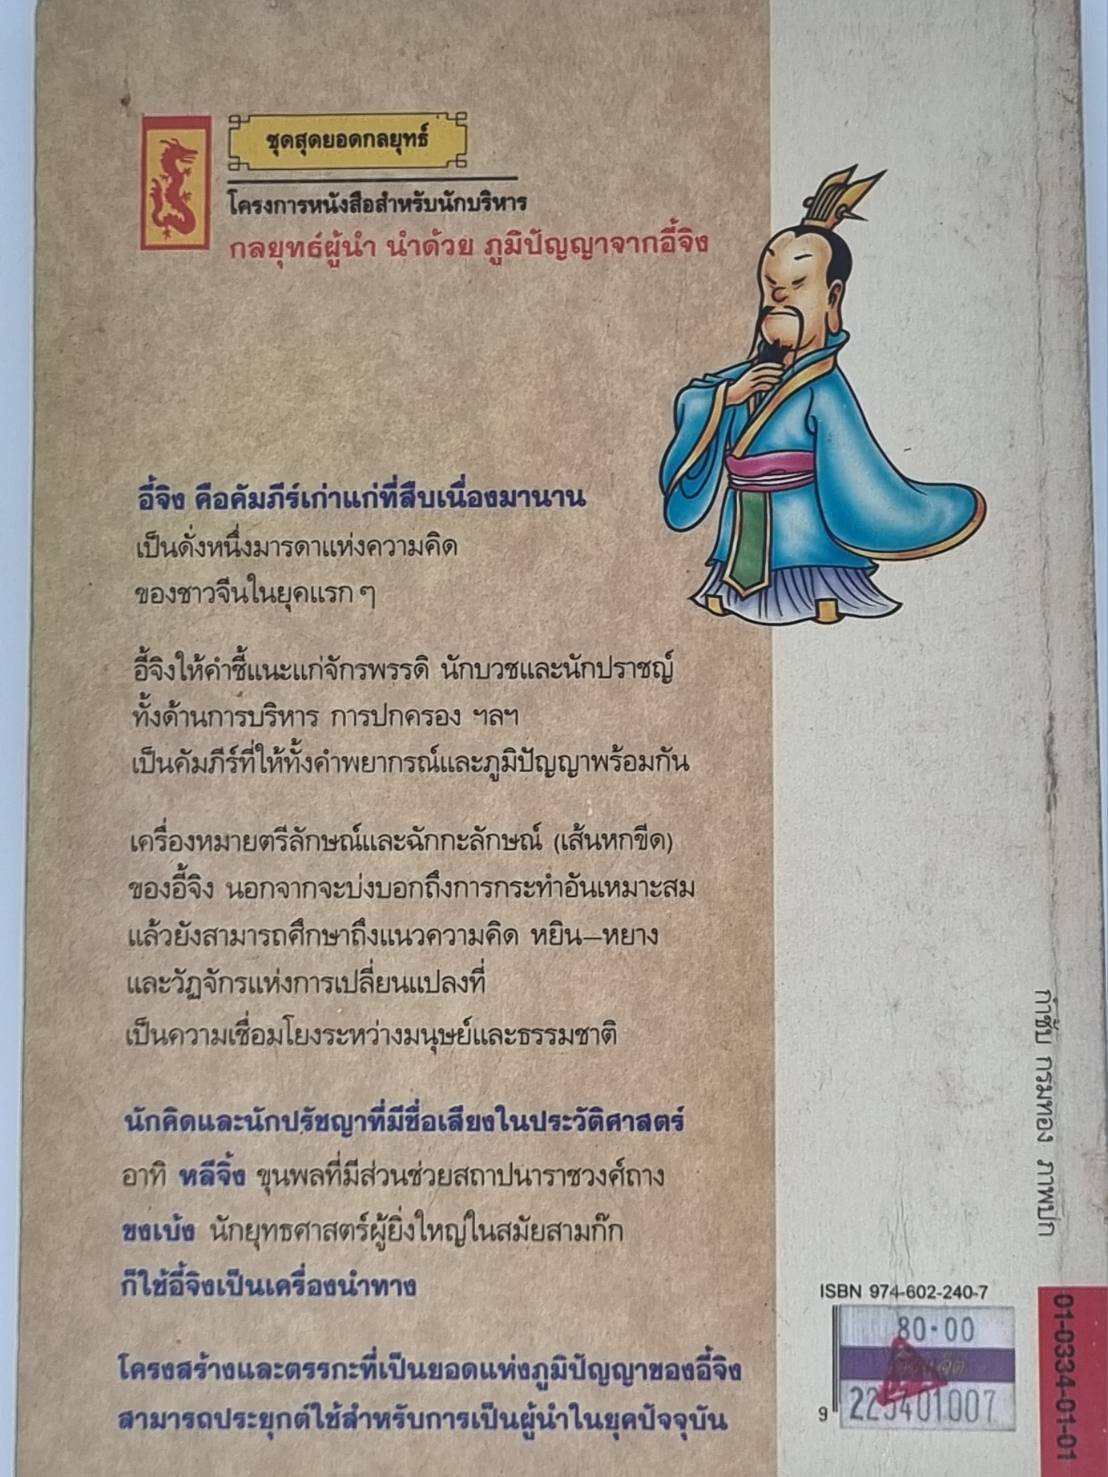 ชุดสุดยอดกลยุทธ์
โครงการหนังสือสำหรับนักบริหาร
กลยุทธ์ผู้นำ นำด้วย ภูมิปัญญาจากอี้จิง
อี้จิง คือคัมภีร์เก่าแก่ที่สืบเนื่องมานาน
เป็นดั่งหนึ่งมารดาแห่งความคิด
ของชาวจีนในยุคแรก ๆ
อี้จิงให้คำชี้แนะแก่จักรพรรดิ นักบวชและนักปราชญ์
ทั้งด้านการบริหาร การปกครอง ฯลฯ
เป็นคัมภีร์ที่ให้ทั้งคำพยากรณ์และภูมิปัญญาพร้อมกัน
เครื่องหมายตรีลักษณ์และฉักกะลักษณ์ (เส้นหกขีด)
ของอี้จิง นอกจากจะบ่งบอกถึงการกระทำอันเหมาะสม
แล้วยังสามารถศึกษาถึงแนวความคิด หยิน–หยาง
และวัฏจักรแห่งการเปลี่ยนแปลงที่
เป็นความเชื่อมโยงระหว่างมนุษย์และธรรมชาติ
นักคิดและนักปรัชญาที่มีชื่อเสียงในประวัติศาสตร์
อาทิ หลีจิ้ง ขุนพลที่มีส่วนช่วยสถาปนาราชวงศ์ถาง
ขงเบ้ง นักยุทธศาสตร์ผู้ยิ่งใหญ่ในสมัยสามก๊ก
ก็ใช้อี้จิงเป็นเครื่องนำทาง
โครงสร้างและตรรกะที่เป็นยอดแห่งภูมิปัญญาของอี้จิง
สามารถประยุกต์ใช้สำหรับการเป็นผู้นำในยุคปัจจุบัน
กำชับ กรมทอง ภาพปก
ISBN 974-602-240-7
80.00
9
01-0334-01-01